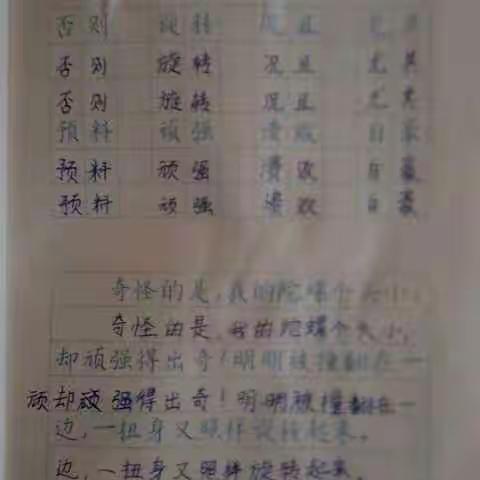 否则 旋转 况且 尤其
否则 旋转 况且 尤其
否则 旋转 况且 尤其
预料 顽强 溃败 自豪
预料 顽强 溃败 自豪
预料 顽强 溃败 自豪
奇怪的是,我的陀螺个头小,
奇怪的是,我的陀螺个头小,
却顽强得出奇!明明被撞翻在一
顽却顽强得出奇!明明被撞翻在一
边,一扭身又照样旋转起来。
边,一扭身又照样旋转起来。